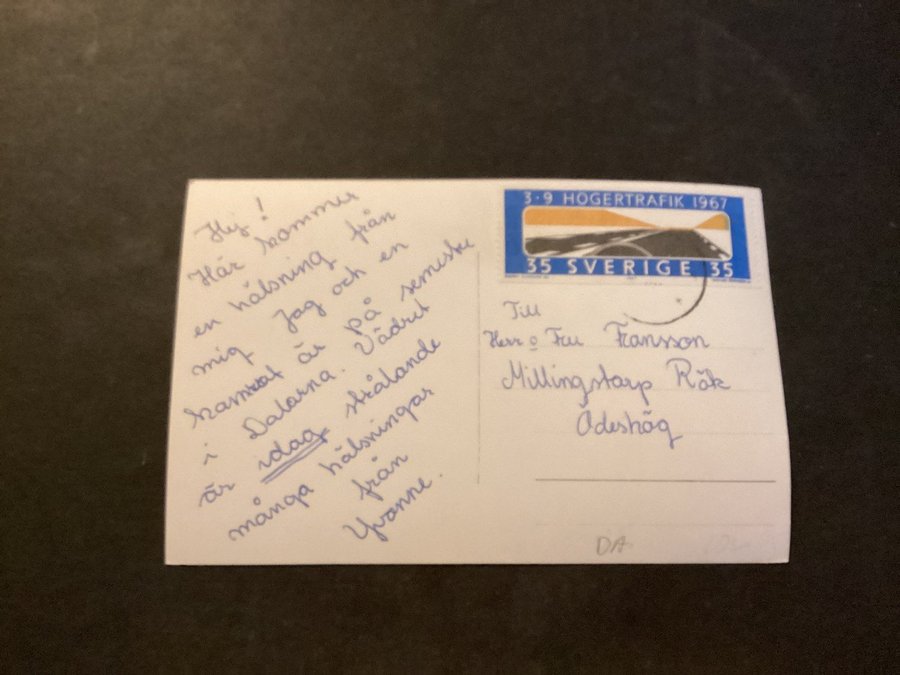 Hej!
Här kommer
en hälsning från
mig Jag och en
kamrat är på semester
i Dalarna. Vädret
är idag strålande
många hälsningar
från
Yvonne.
3·9 HÖGERTRAFIK 1967
35 SVERIGE 35
Till
Herr o Fru Fransson
Millingstorp Rök
Ödeshög
DA